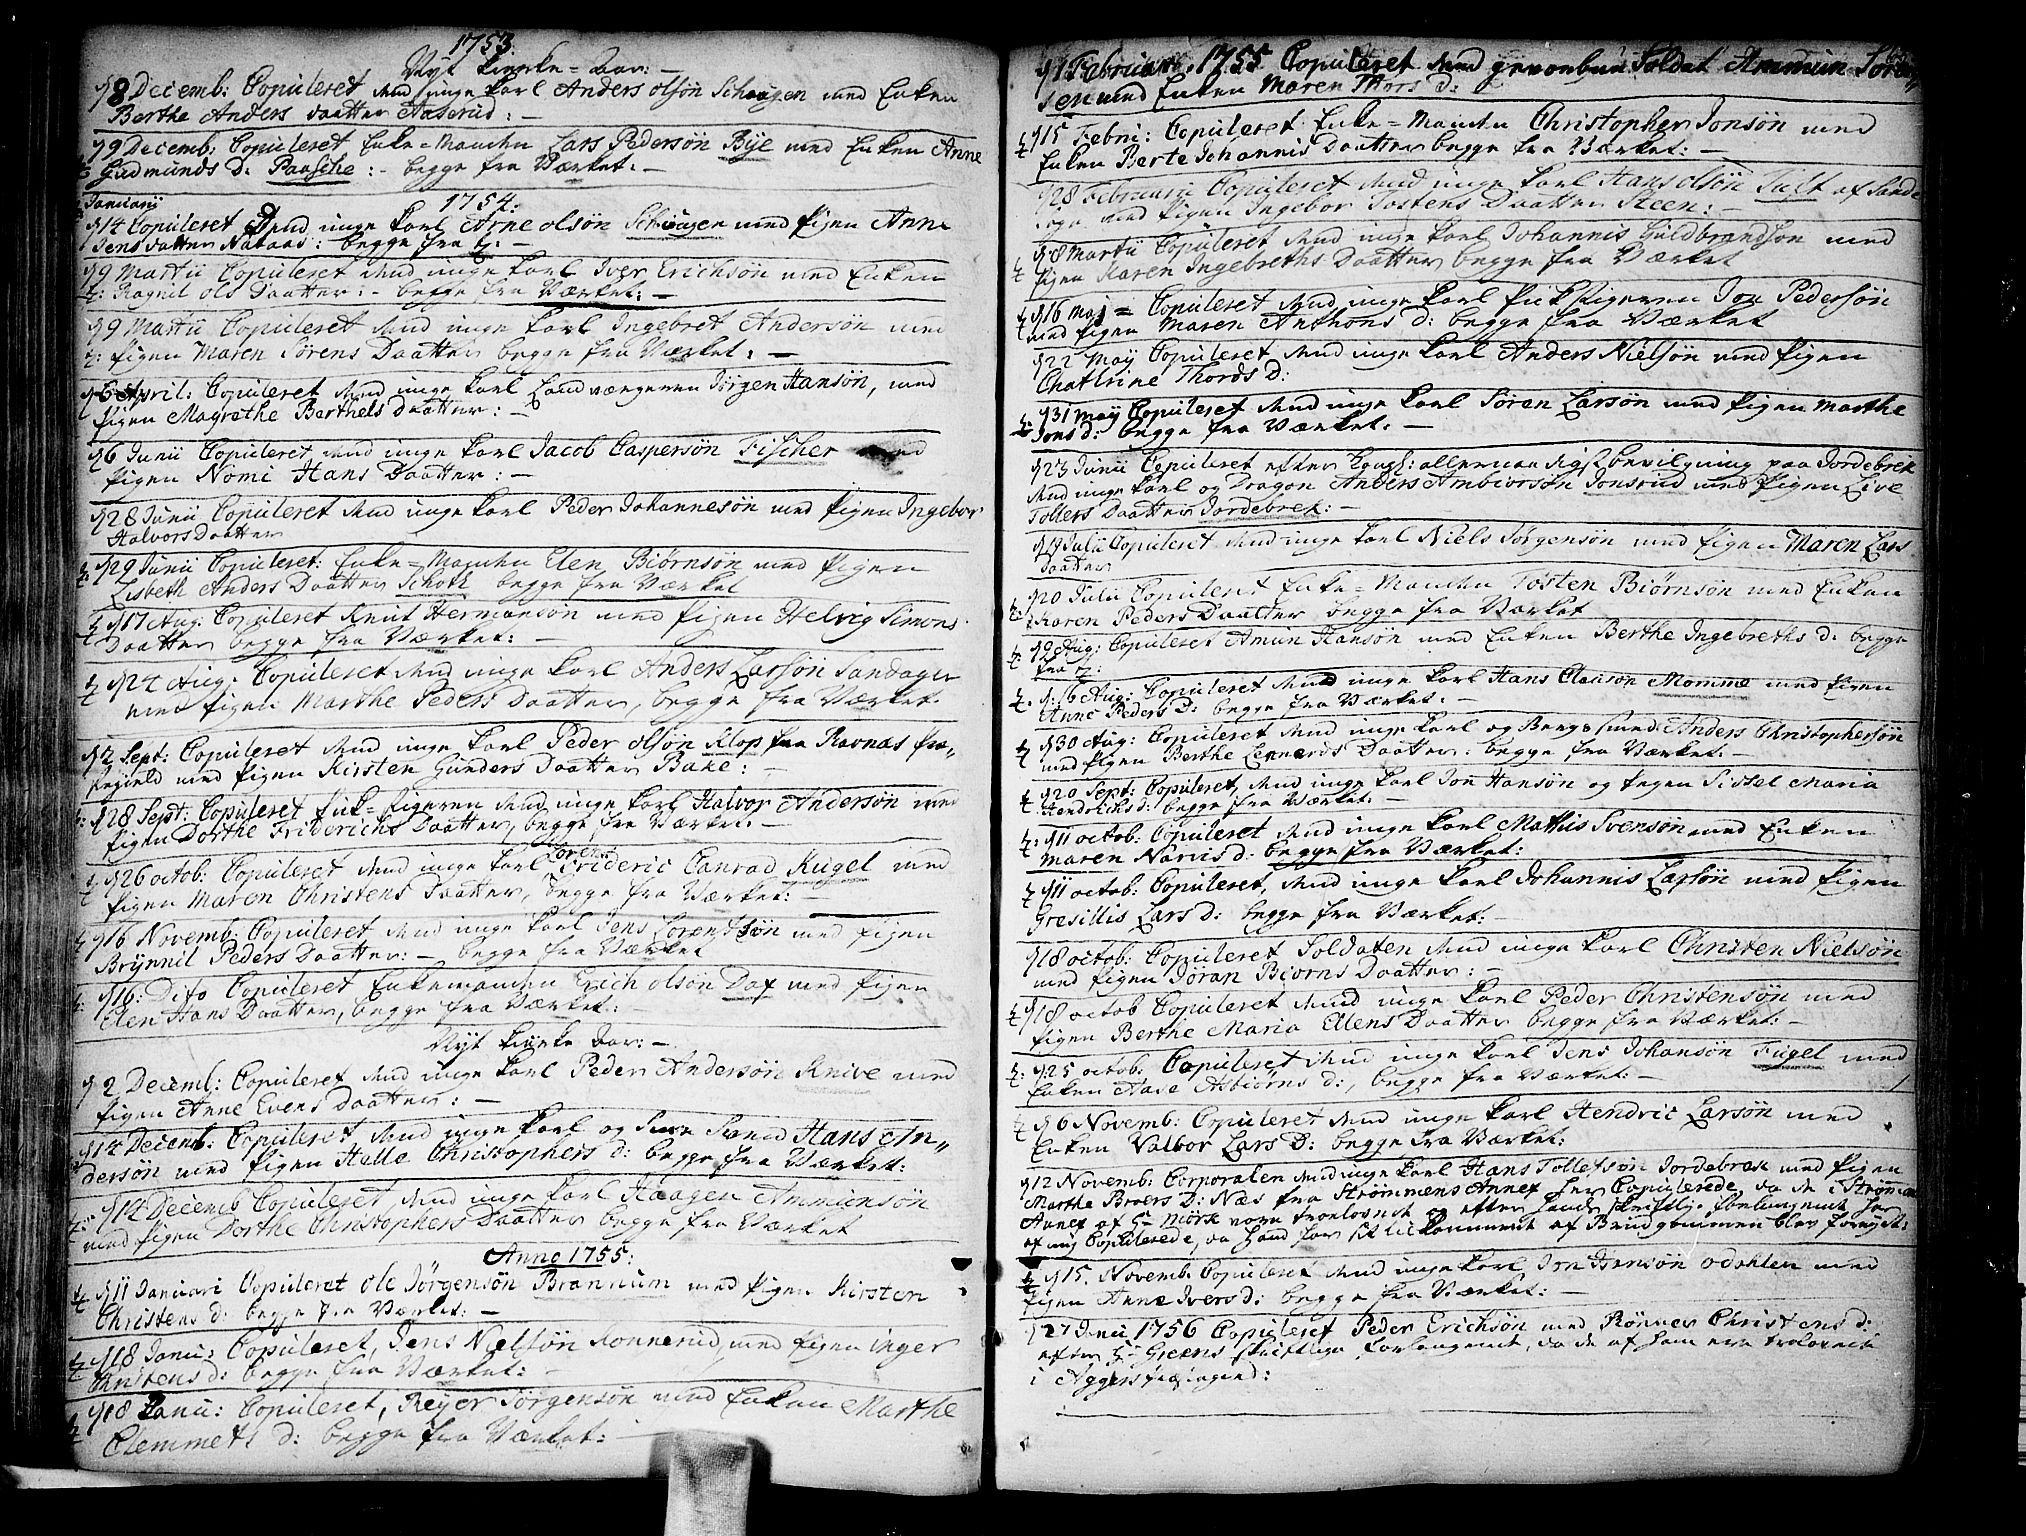 1753.
Nyt Kierke=Aar: —
8 Decemb: Copuleret und unge Karl Anders Olsön Schougen med Enken
Berthe Anders daatter Aaserud: —
9 Decemb: Copuleret Enke=Manden Lars Pedersön Bye med Enken Anne
Gudmunds D: Paasche: - begge fra Værket: —
Januarii 1754:
14 Copuleret und unge Karl Arne Olsön Schougen med Pigen Anne
Jens datter Nataas: begge fra
9 Martii Copuleret und unge Karl Iver Erichsön med Enken
Ragnil Ols Daatter: - begge fra Værket: —
9 Martii Copuleret und unge Karl Ingebret Andersön med
Pigen Maren Sörens Daatter begge fra Værket: —
6 April: Copuleret und unge Karl Landværgeren Jörgen Hansön, med
Pigen Magrethe Berthels Daatter: —
6 Junii Copuleret und unge Karl Jacob Caspersön Fischer med
Pigen Nomi Hans Daatter: —
28 Junii Copuleret und unge Karl Peder Johannesön med Pigen Ingebor
Halvors Daatter
29 Junii Copuleret: Enke=Manden Elen Biörnsön med Pigen
Lisbeth Anders Daatter Schott begge fra Værket
17 Aug: Copuleret Knut Hermansön med Pigen Helvig Simons
Daatter begge fra Værket: —
24 Aug: Copuleret und unge Karl Anders Larsön Sandager
med Pigen Marthe Peders Daatter, begge fra Værket.
2 Sept: Copuleret und unge Karl Peder Olsön Klop fra Ravnæs Præ„
stegield med Pigen Kirsten Gunders Daatter Bake: —
28 Sept: Copuleret und unge Karl Halvor Andersön med
Pigen Dorthe Friderichs Daatter, begge fra Værket: —
26 octob: Copuleret und unge Karl Lorens Frideric Conrad Kugel med
Pigen Maren Christens Daatter, begge fra Værket: —
16 Novemb: Copuleret und unge Karl Jens Lorentsön med Pigen
Brynnil Peders Daatter: — begge fra Værket
16: Dito Copuleret Enkemanden Erich Olsön Dax med Pigen
Elen Hans Daatter, begge fra Værket: —
Nyt Kirke Aar: —
2 Decemb: Copuleret und unge Karl Peder Andersön Knive med
Pigen Anne Evens Daatter: —
14 Decemb: Copuleret und unge Karl og Hans An„
dersön med Pigen Helle Christophers d: begge fra Værket:
14 Decemb Copuleret, und unge Karl Haagen Ammunsön
med Pigen Dorthe Christophers Daatter begge fra Værket
Anno 1755:
11 Januari Copuleret Ole Jörgensön Brannum med Pigen Kirsten
Christens d: begge fra Værket: —
18 Janu: Copuleret, Jens Nielsön Konnerud, med Pigen Inger
Christens d: begge fra Værket: —
18 Janu: Copuleret, Reyer Jörgensön med Enken Marthe
Clemmets d: begge fra Værket: —
1 Februarii 1755 Copuleret med Soldat Ammun Sören
sen med Enken Maren Thors d:
15 Febri: Copuleret Enke=Manden Christopher Jonsön med
Enken Berte Johannis Daatter begge fra Værket: —
28 Februarii Copuleret und unge Karl Hans Olsön Tuft af Sande
med Pigen Ingebor Tostens Daatter Steen: —
8 Martii Copuleret und unge Karl Johannis Guldbrandsön med
Pigen Karen Ingebreths Daatter begge fra Værket
16 Maj = Copuleret und unge Karl Jon Pedersön
med Pigen Maren Anthons d: begge fra Værket
22 May Copuleret und unge Karl Anders Nielsön med Pigen
Chathrine Thords d:
31 May Copuleret und unge Karl Sören Larsön med Pigen Marthe
Jons d: begge fra Værket: —
23 Junii Copuleret efter Kongl: allernaadigst bevilgning paa Jordebrek
und unge Karl og Dragon Anders Ambiörsön Jonsrud med Pigen Live
Tollers Daatter Jordebrek: —
19 Julii Copuleret und unge Karl Niels Jörgensön med Pigen Maren Lars
Daatter
20 Julii Copuleret Enke=Manden Tosten Biörnsön med Enken
Karen Peders Daatter begge fra Værket
Aug: Copuleret Amun Hansön med Enken Berthe Ingebreths d: begge
fra
16 Aug: Copuleret und unge Karl Hans Clauson Momme med Pigen
Anne Peders D: begge fra Værket: —
30 Aug: Copuleret und unge Karl og Bergsmed Anders Christophersön
med Pigen Berthe Lennerds Daatter: begge fra Værket: —
20 Sept: Copuleret, und unge Karl Jon Hansön og Pigen Sissel Maria
Hendrichs d: begge fra Værket: —
11 octob: Copuleret und unge Karl Mathis Svensön med Enken
Maren Narvis d: begge fra Værket:
11 octob: Copuleret, und unge Karl Johannis Larsön med Pigen
Gresillis Lars d: begge fra Værket: —
18 octob: Copuleret Soldaten und unge Karl Christen Nielsön
med Pigen Jöran Biorns Daatter: —
18 octob Copuleret und unge Karl Peder Christensön med
Pigen Berthe Maria Ellens Daatter begge fra Værket: —
25 octob: Copuleret und unge Karl Jens Johansön Fugel med
Enken Aase Asbiörns d:, begge fra Værket: —
6 Novemb: Copuleret und unge Karl Hendric Larsön med
Enken Valbor Lars D: begge fra Værket:
12 Novemb: Corporalen und unge Karl Hans Tollefsön Jordebræk med Pigen
Marthe Broers D: Næs fra Strömmens Annex her Copulerede, da de i Strömmens
Annex af Hr Mörk vare troelovede og efter hands skriftlig forlangende her
af mig Copulerede, da
15. Novemb: Copuleret und unge Karl Jon Odahlen med
Pigen Anne Ivers d: begge fra Værket: —
27 Janu 1756 Copuleret Peder Erichsön med Rönner Christens d:
efter Hr Greens skriftlige forlangende, da de af ham ere trolovede
i Aggers Præstegield: